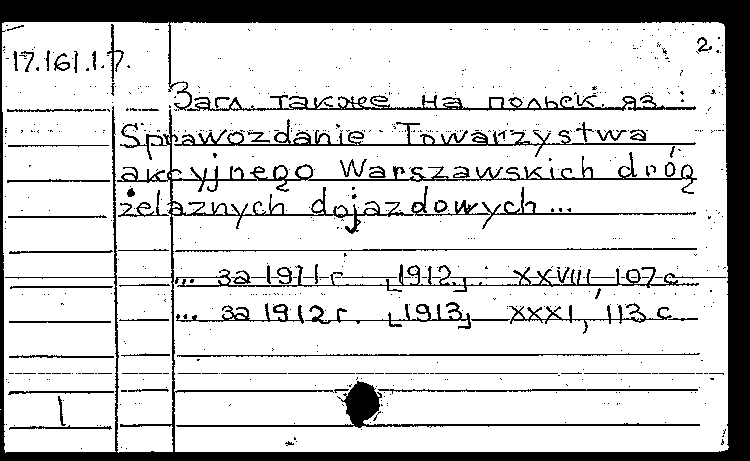 2.
17.161.1.7.
Загл. также на польск. яз. :
Sprawozdanie Towarzystwa
akcyjnego Warszawskich dróg
żelaznych dojazdowych ...
... за 1911 г. [1912]. XXVIII, 107 с.
... за 1912 г. [1913] XXXI, 113 с.
1